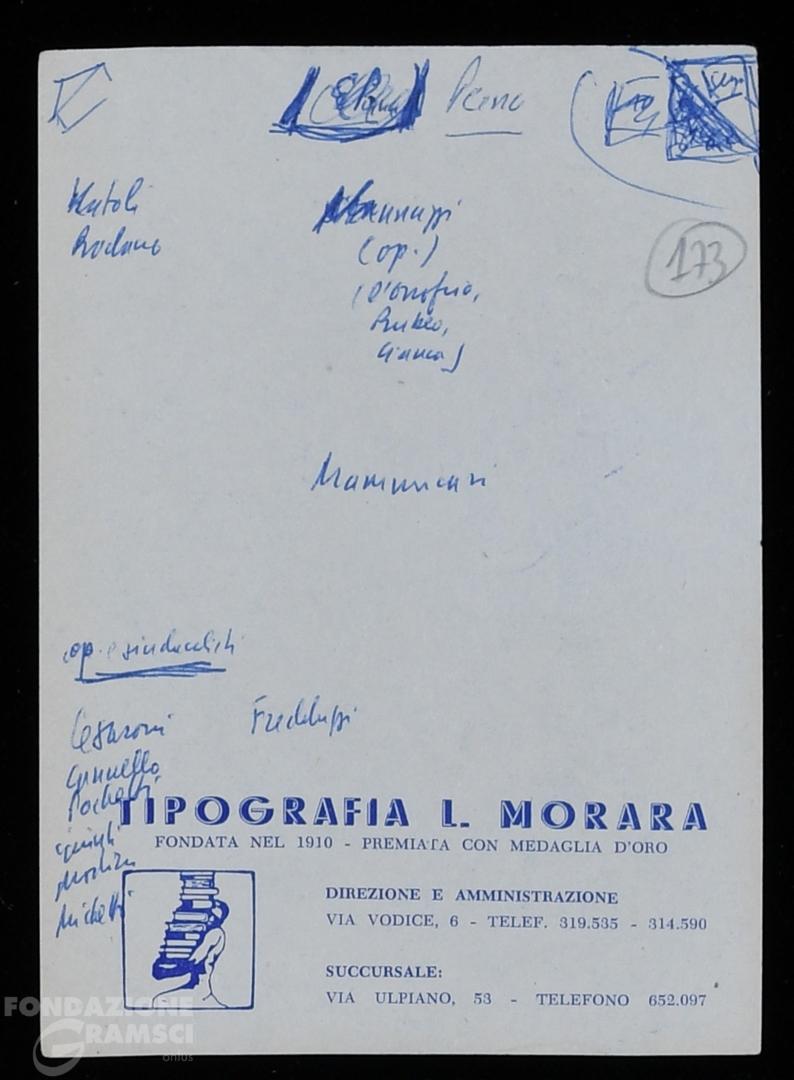 Perna
173
Natoli
Rodano
Nannuzzi
(op.)
(D'Onofrio,
Rubeo,
Cianca)
Mammucari
op. e sindacalisti
Cesaroni
Fredduzzi
Pochetti
Michetti
TIPOGRAFIA L. MORARA
FONDATA NEL 1910 - PREMIATA CON MEDAGLIA D'ORO
DIREZIONE E AMMINISTRAZIONE
VIA VODICE, 6 - TELEF. 319.535 - 314.590
SUCCURSALE:
VIA ULPIANO, 53 - TELEFONO 652.097
FONDAZIONE
GRAMSCI
onlus